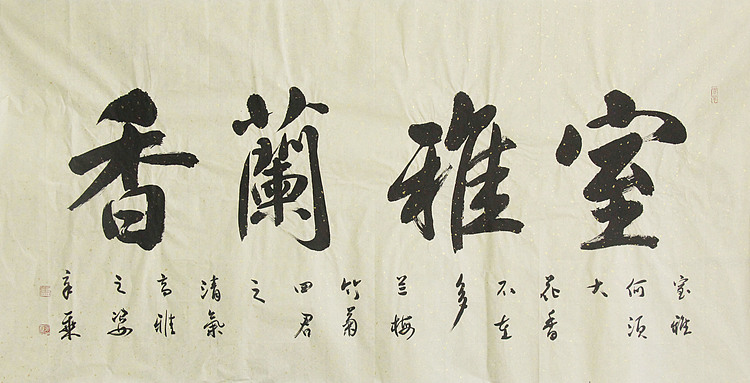 室雅蘭香
室雅
何须
大
花香
不在
多
兰梅
竹菊
四君
之
清氣
高雅
之姿